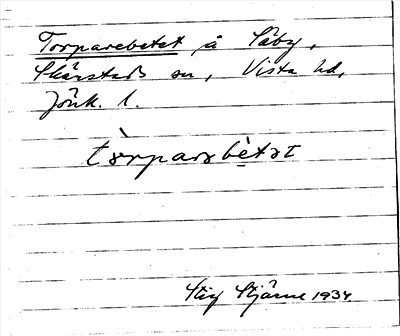 Torparebetet å Säby,
Skärstads sn, Vista hd,
Jönk. l.
tòrparəbètət
Stig Stjärne 1934